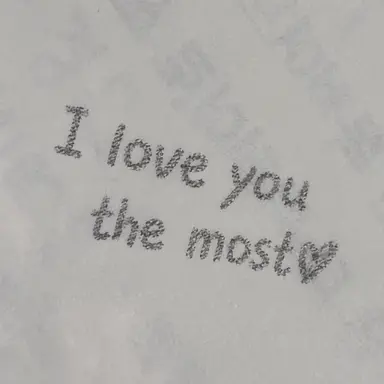 I love you
the most♥